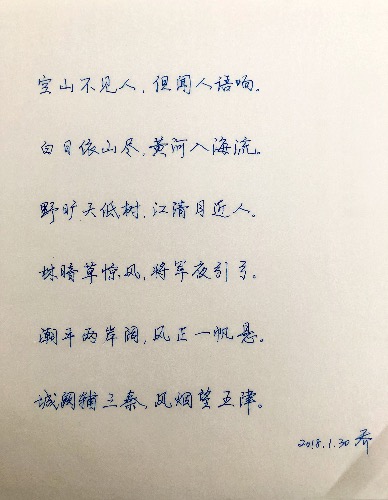 空山不见人，但闻人语响。
白日依山尽，黄河入海流。
野旷天低树，江清月近人。
林暗草惊风，将军夜引弓。
潮平两岸阔，风正一帆悬。
城阙辅三秦，风烟望五津。
2018.1.30 乔